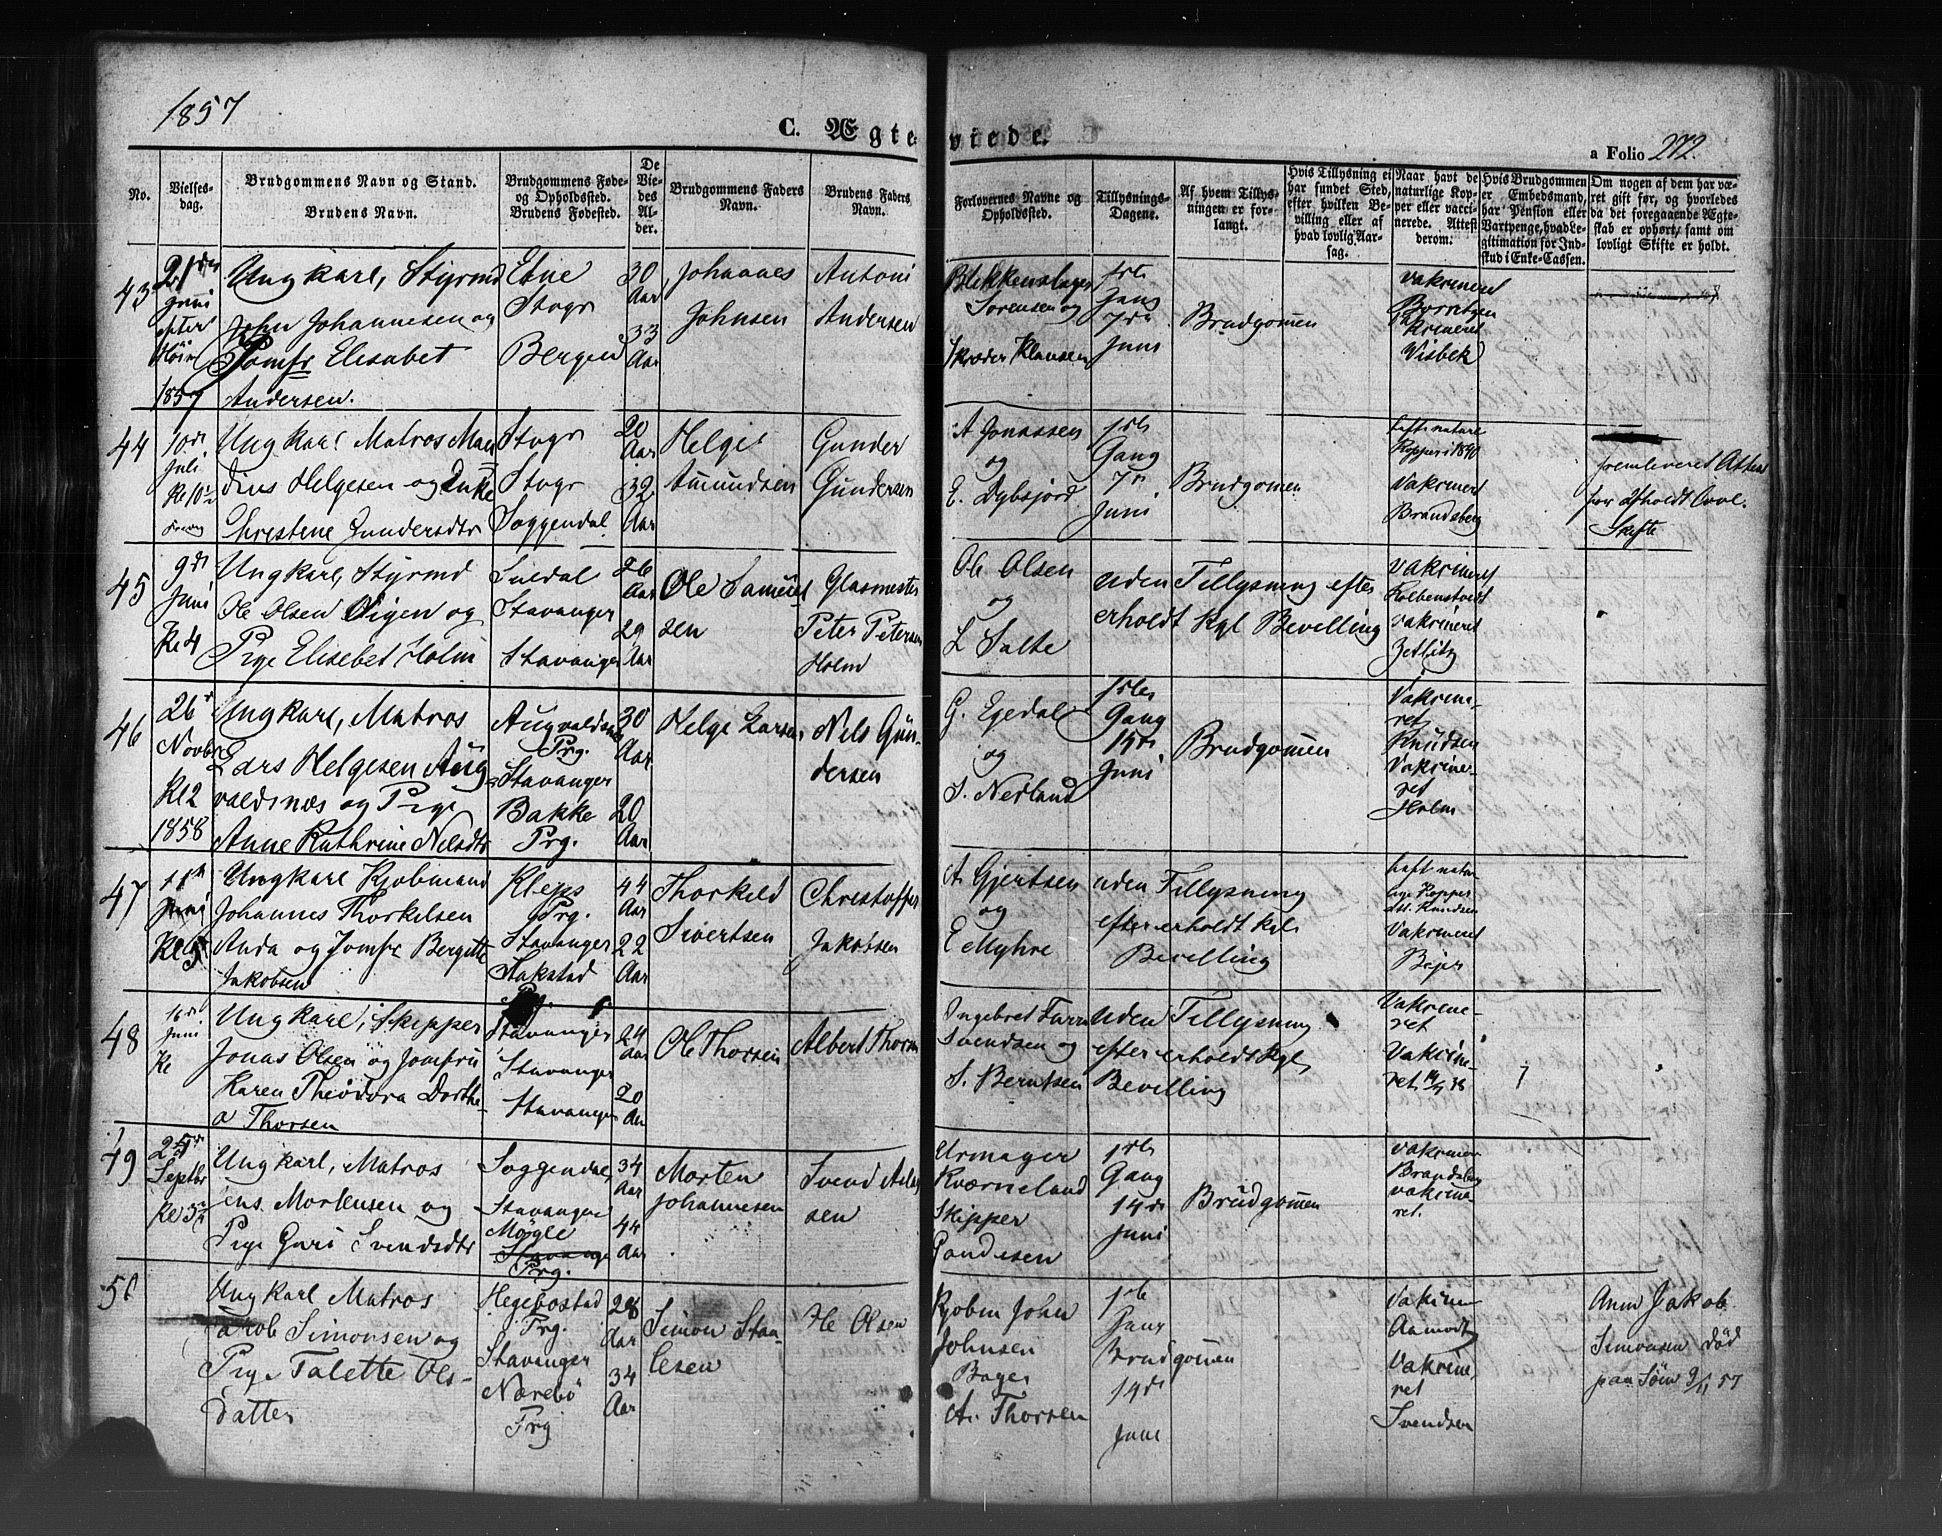 1857
C. Ægteviede.
a Folio 272.
No.
Vielses-
dag.
Brudgommens Navn og Stand.
Brudens Navn.
Brudgommens Føde-
og Opholdssted.
Brudens Fødested.
De
Vie-
des
Al-
der.
Brudgommens Faders
Navn.
Brudens Faders
Navn.
Forlovernes Navne og
Opholdssted.
Tillysnings-
Dagene.
Af hvem Tillys-
ningen er for-
langt.
Hvis Tillysning ei
har fundet Sted,
efter hvilken Be-
villing eller af
hvad lovlig Aar-
sag.
Naar havt de
naturlige Kop-
per eller vacci-
nerede. Attest
derom.
Hvis Brudgommen
er Embedsmand,
har Pension eller
Vartpenge, hvad Le-
gitimation for Ind-
skud i Enke-Cassen.
Om nogen af dem har væ-
ret gift før, og hvorledes
da det foregaaende Ægte-
skab er ophørt, samt om
lovligt Skifte er holdt.
43
21de
Juni
efter
1857
Ungkarl, Styrmd
John Johannesen og
Jomfr Elisabet
Andersen.
Etne
Stvgr
Bergen
30
Aar
33
Aar
Johannes
Johnsen
Antoni
Andersen
Blikkenslager
Sørensen og
Skræder Klausen
1ste
Gang
7de
Juni
Brudgomen
Vakcineret
Vakcineret
Visbek
44
10de
Juli
Ungkarl Matros
Helgesen og Enke
Christene Gundersdtr
Stvgr
Stvgr
Soggendal
20
Aar
32
Aar
Helge
Amundsen
Gunder
Gundersen
A Jonassen
og
E. Dybsjord
1ste
Gang
7de
Juni
Brudgomen
haft naturl
Kopper i 1840
Vakcineret
Brandsberg
fremleveret Attest
for afholdt lovl.
Skifte
45
9de
Juni
Kl 4
Ungkarl, Styrmd
Ole Olsen Eigen og
Pige Elisebet Holm
Suldal
Stavanger
Stavanger
26
Aar
29
Aar
Ole Samuel
sen
Glasmester
Peter Petersen
Holm
Ole Olsen
og
L Salte
uden Tillysning efter
erholdt Kgl Bevilling
Vakcineret
Kolbenstvedt
vakcineret
Zetlitz
46
26de
Novbr
Kl 2
1858
Ungkarl, Matros
Lars Helgesen Aug
valdsnæs og Pige
Anne Kathrine Nelsdtr
Augvaldsn
Prg.
Stavanger
Bakke
Prg.
30
Aar
20
Aar
Helge Larsen
Nels Gun-
dersen
G. Egedal
og
S. Nerland
1ste
Gang
14de
Juni
Brudgomen
Vakcine-
ret
Knudsen
Vakcine-
ret
Holm
47
11te
Juni
Kl 5
Ungkarl Kjøbmand
Johannes Thorkelsen
Anda og Jomfr Bergitte
Jakobsen
Klepps
Prg.
Stavanger
Hakstad
44
Aar
22
Aar
Thorkeld
Sivertsen
Christoffer
Jakobsen
A. Gjertsen
og
E Myhre
uden Tillysning
efter erholdt Kgl
Bevilling
haft natur-
lige Kopper
Att. Knudsen
Vakcineret
48
16de
Juni
Kl
Ungkarl, Skipper
Jonas Olsen og Jomfru
Karen Theodora Dorthe-
a Thorsen
Stavanger
Stavanger
Stavanger
24
Aar
20
Aar
Ole Thorsen
Albert Thorsen
Ingebret
Svendsen og
S. Berntsen
uden Tillysning
efter erholdt Kgl
Bevilling
Vakcine-
ret
Vakcine-
ret
49
Septbr
Ungkarl, Matros
Jens. Mortensen og
Pige Guri Svendsdtr
Soggendal
Stavanger
Møgle
Stavanger
Prg.
34
Aar
44
Aar
Morten
Johannesen
Svend
sen
Urmager
Kværneland
Skipper
1ste
Gang
14de
Juni
Brudgomen
Vakciner
Brandsberg
vakcine-
ret.
50
Ungkarl Matros
Jakob Simonsen og
Pige Talette Ols-
datter
Hegebostad
Prg.
Stavanger
Nærebø
Prg
28
Aar
34
Aar
Simon Staa-
lesen
Ole Olsen
Kjøbm John
Johnsen
Bager
A. Thorsen
1ste
Gang
Brudgomen
14de
Juni
Vakcine
Aamodt
Vakcine,
ret
Svendsen
Anm Jakob
Simonsen død
paa Søen 9/11 57